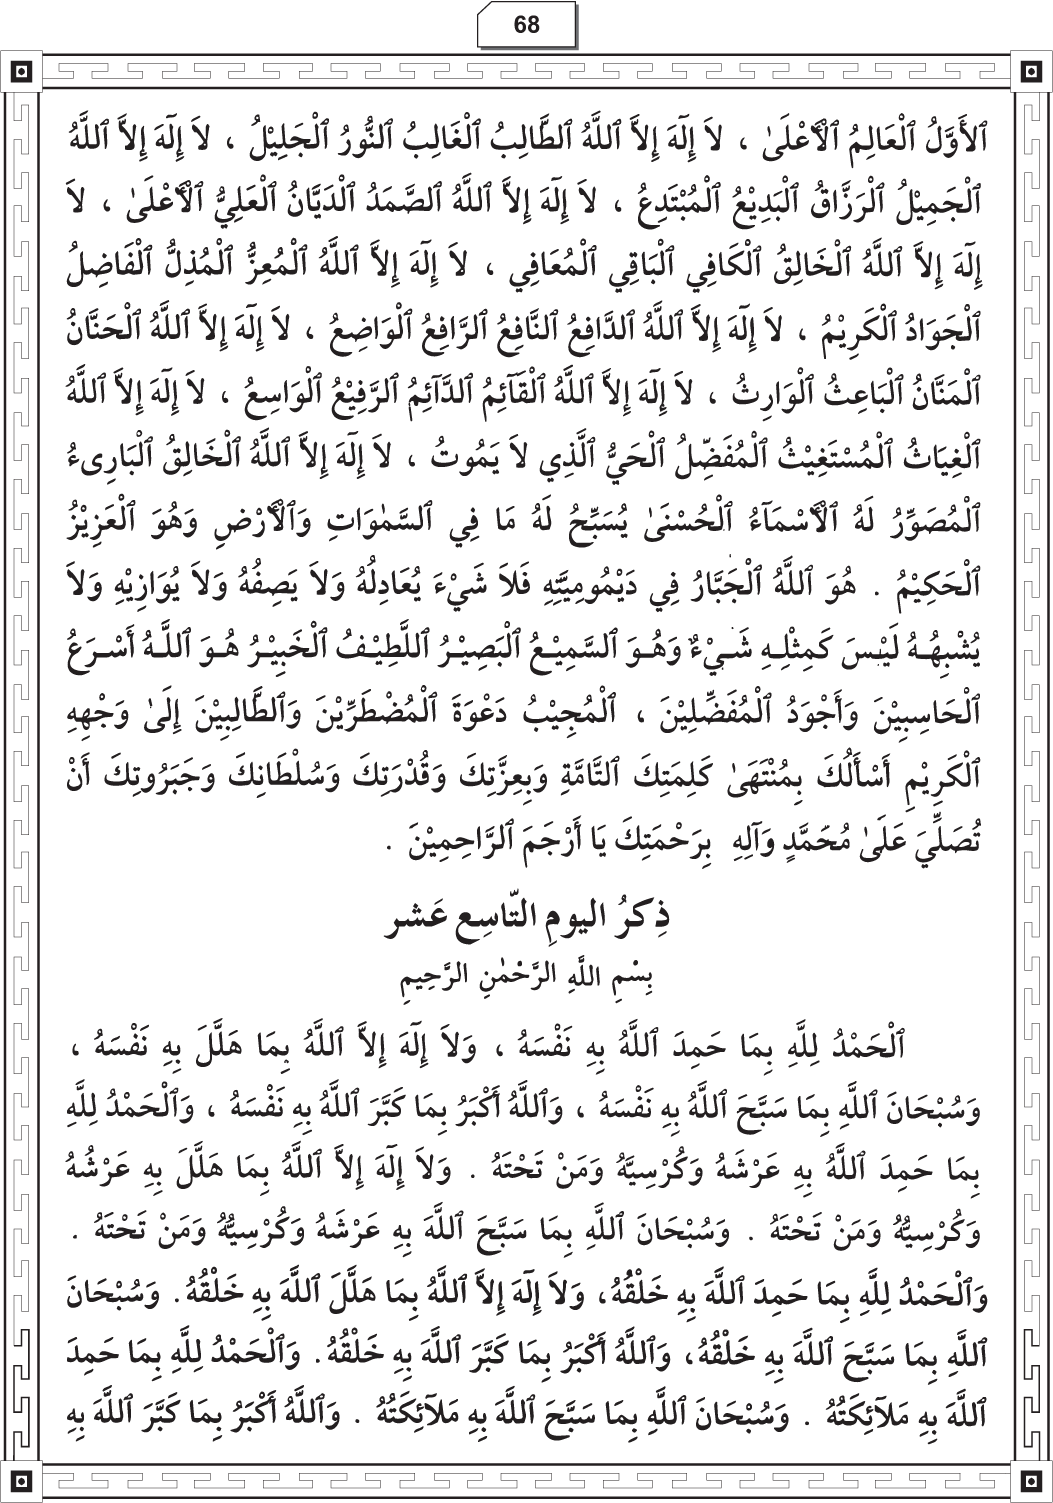 68
ٱلأَوَّلُ ٱلْعَالِمُ ٱلْأَعْلَىٰ ، لاَ إِلٰهَ إِلاَّ ٱللَّهُ ٱلطَّالِبُ ٱلْغَالِبُ ٱلنُّورُ ٱلْجَلِيْلُ ، لاَ إِلٰهَ إِلاَّ ٱللَّهُ
ٱلْجَمِيْلُ ٱلْرَزَّاقُ ٱلْبَدِيْعُ ٱلْمُبْتَدِعُ ، لاَ إِلٰهَ إِلاَّ ٱللَّهُ ٱلصَّمَدُ ٱلْدَيَّانُ ٱلْعَلِيُّ ٱلْأَعْلَىٰ ، لاَ
إِلٰهَ إِلاَّ ٱللَّهُ ٱلْخَالِقُ ٱلْكَافِي ٱلْبَاقِي ٱلْمُعَافِي ، لاَ إِلٰهَ إِلاَّ ٱللَّهُ ٱلْمُعِزُّ ٱلْمُذِلُّ ٱلْفَاضِلُ
ٱلْجَوَادُ ٱلْكَرِيْمُ ، لاَ إِلٰهَ إِلاَّ ٱللَّهُ ٱلدَّافِعُ ٱلنَّافِعُ ٱلرَّافِعُ ٱلْوَاضِعُ ، لاَ إِلٰهَ إِلاَّ ٱللَّهُ ٱلْحَنَّانُ
ٱلْمَنَّانُ ٱلْبَاعِثُ ٱلْوَارِثُ ، لاَ إِلٰهَ إِلاَّ ٱللَّهُ ٱلْقَآئِمُ ٱلدَّآئِمُ ٱلرَّفِيْعُ ٱلْوَاسِعُ ، لاَ إِلٰهَ إِلاَّ ٱللَّهُ
ٱلْغِيَاثُ ٱلْمُسْتَغِيْثُ ٱلْمُفَضِّلُ ٱلْحَيُّ ٱلَّذِي لاَ يَمُوتُ ، لاَ إِلٰهَ إِلاَّ ٱللَّهُ ٱلْخَالِقُ ٱلْبَارِىءُ
ٱلْمُصَوِّرُ لَهُ ٱلْأَسْمَآءُ ٱلْحُسْنَىٰ يُسَبِّحُ لَهُ مَا فِي ٱلسَّمٰوَاتِ وَٱلْأَرْضِ وَهُوَ ٱلْعَزِيْزُ
ٱلْحَكِيْمُ . هُوَ ٱللَّهُ ٱلْجَبَّارُ فِي دَيْمُومِيَّتِهِ فَلاَ شَيْءَ يُعَادِلُهُ وَلاَ يَصِفُهُ وَلاَ يُوَازِيْهِ وَلاَ
يُشْبِهُهُ لَيْسَ كَمِثْلِهِ شَيْءٌ وَهُوَ ٱلسَّمِيْعُ ٱلْبَصِيْرُ ٱللَّطِيْفُ ٱلْخَبِيْرُ هُوَ ٱللَّهُ أَسْرَعُ
ٱلْحَاسِبِيْنَ وَأَجْوَدُ ٱلْمُفَضِّلِيْنَ ، ٱلْمُجِيْبُ دَعْوَةَ ٱلْمُضْطَرِّيْنَ وَٱلطَّالِبِيْنَ إِلَىٰ وَجْهِهِ
ٱلْكَرِيْمِ أَسْأَلُكَ بِمُنْتَهَىٰ كَلِمَتِكَ ٱلتَّامَّةِ وَبِعِزَّتِكَ وَقُدْرَتِكَ وَسُلْطَانِكَ وَجَبَرُوتِكَ أَنْ
تُصَلِّيَ عَلَىٰ مُحَمَّدٍ وَآلِهِ بِرَحْمَتِكَ يَا أَرْحَمَ ٱلرَّاحِمِيْنَ .
ذِكرُ اليومِ التّاسِع عَشر
بِسْمِ اللَّهِ الرَّحْمٰنِ الرَّحِيمِ
ٱلْحَمْدُ لِلَّهِ بِمَا حَمِدَ ٱللَّهُ بِهِ نَفْسَهُ ، وَلاَ إِلٰهَ إِلاَّ ٱللَّهُ بِمَا هَلَّلَ بِهِ نَفْسَهُ ،
وَسُبْحَانَ ٱللَّهِ بِمَا سَبَّحَ ٱللَّهُ بِهِ نَفْسَهُ ، وَٱللَّهُ أَكْبَرُ بِمَا كَبَّرَ ٱللَّهُ بِهِ نَفْسَهُ ، وَٱلْحَمْدُ لِلَّهِ
بِمَا حَمِدَ ٱللَّهُ بِهِ عَرْشَهُ وَكُرْسِيَّهُ وَمَنْ تَحْتَهُ . وَلاَ إِلٰهَ إِلاَّ ٱللَّهُ بِمَا هَلَّلَ بِهِ عَرْشُهُ
وَكُرْسِيُّهُ وَمَنْ تَحْتَهُ . وَسُبْحَانَ ٱللَّهِ بِمَا سَبَّحَ ٱللَّهَ بِهِ عَرْشَهُ وَكُرْسِيُّهُ وَمَنْ تَحْتَهُ .
وَٱلْحَمْدُ لِلَّهِ بِمَا حَمِدَ ٱللَّهَ بِهِ خَلْقُهُ، وَلاَ إِلٰهَ إِلاَّ ٱللَّهُ بِمَا هَلَّلَ ٱللَّهَ بِهِ خَلْقُهُ. وَسُبْحَانَ
ٱللَّهِ بِمَا سَبَّحَ ٱللَّهَ بِهِ خَلْقُهُ، وَٱللَّهُ أَكْبَرُ بِمَا كَبَّرَ ٱللَّهَ بِهِ خَلْقُهُ. وَٱلْحَمْدُ لِلَّهِ بِمَا حَمِدَ
ٱللَّهَ بِهِ مَلآئِكَتُهُ . وَسُبْحَانَ ٱللَّهِ بِمَا سَبَّحَ ٱللَّهَ بِهِ مَلآئِكَتُهُ . وَٱللَّهُ أَكْبَرُ بِمَا كَبَّرَ ٱللَّهَ بِهِ